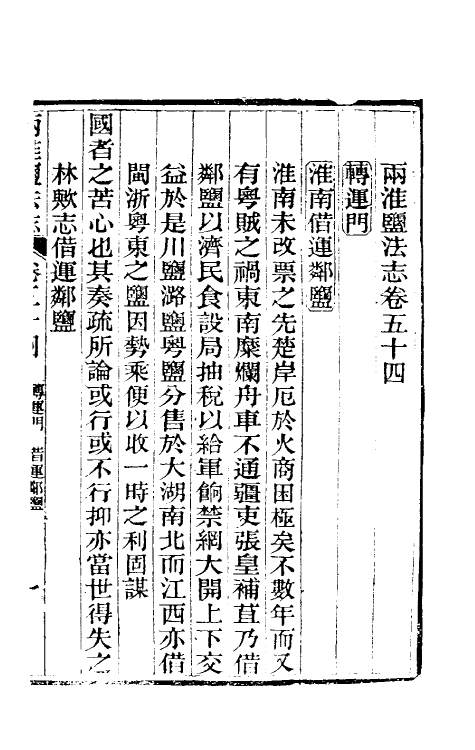 兩淮鹽法志卷五十四
轉運門
淮南借運鄰鹽
淮南未改票之先楚岸厄於火商困極矣不數年而又
有粵賊之禍東南糜爛舟車不通疆吏張皇補苴乃借
鄰鹽以濟民食設局抽稅以給軍餉禁網大開上下交
益於是川鹽潞鹽粵鹽分售於大湖南北而江西亦借
閩浙粵東之鹽因勢乘便以收一時之利固謀
國者之苦心也其奏疏所論或行或不行抑亦當世得失之
林歟志借運鄰鹽
兩淮鹽法志 卷五十四 轉運門 借運鄰鹽 一